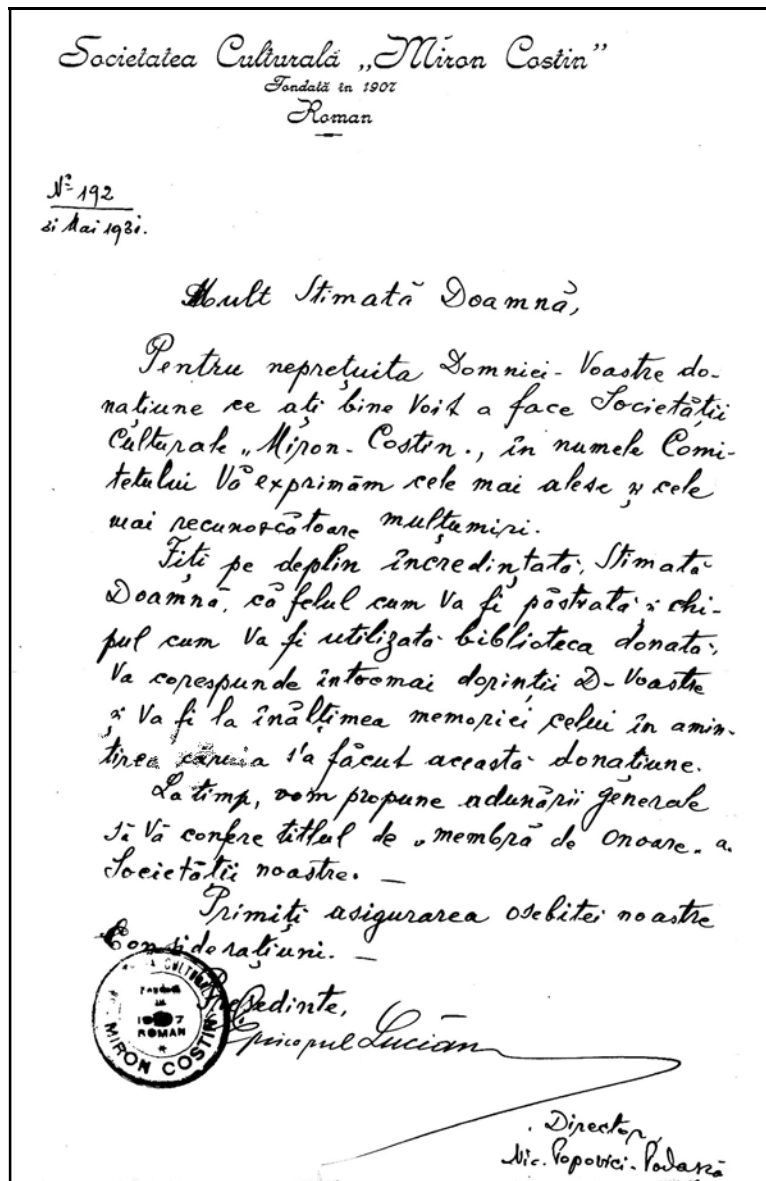 Societatea Culturală „Miron Costin”
Fondată în 1907
Roman
Nº 192
31 Mai 1931.
Mult Stimată Doamnă,
Pentru neprețuita Domniei-Voastre do-
națiune ce ați bine Voit a face Societății
Culturale „Miron-Costin„, în numele Comi-
tetului Vă exprimăm cele mai alese și cele
mai recunoscătoare mulțumiri.
Fiți pe deplin încredințată, Stimată
Doamnă, că felul cum Va fi păstrată și chi-
pul cum Va fi utilizată biblioteca donată,
Va corespunde întocmai dorinții D-Voastre
și Va fi la înălțimea memoriei celui în amin-
tirea căruia s'a făcut această donațiune.
La timp, vom propune adunării generale
să Vă confere titlul de „membră de onoare„ a
Societății noastre. —
Primiți asigurarea osebitei noastre
Considerațiuni. —
CULTURALĂ
FONDATĂ
IN
1907
ROMAN
MIRON COSTIN
Președinte,
Episcopul Lucian
Director,
Nic. Popovici-